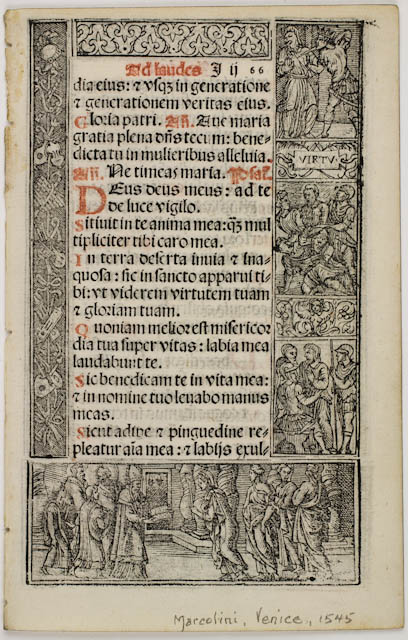 Ad laudes J ij 66
dia eius: & vsq3 in generatione
& generationem veritas eius.
Gloria patri. Añ. Aue maria
gratia plena dñs tecum: bene-
dicta tu in mulieribus alleluia.
Añ. Ne timeas maria. Psal.
DEus deus meus: ad te
de luce vigilo.
Sitiuit in te anima mea: q̃3 mul
tipliciter tibi caro mea.
In terra deserta inuia & ina-
quosa: sic in sancto apparui ti-
bi: vt viderem virtutem tuam
& gloriam tuam.
Quoniam melior est misericor
dia tua super vitas: labia mea
laudabunt te.
Sic benedicam te in vita mea:
& in nomine tuo leuabo manus
meas.
Sicut adipe & pinguedine re-
pleatur aĩa mea: & labijs exul-
VIRTV
Marcolini, Venice, 1545